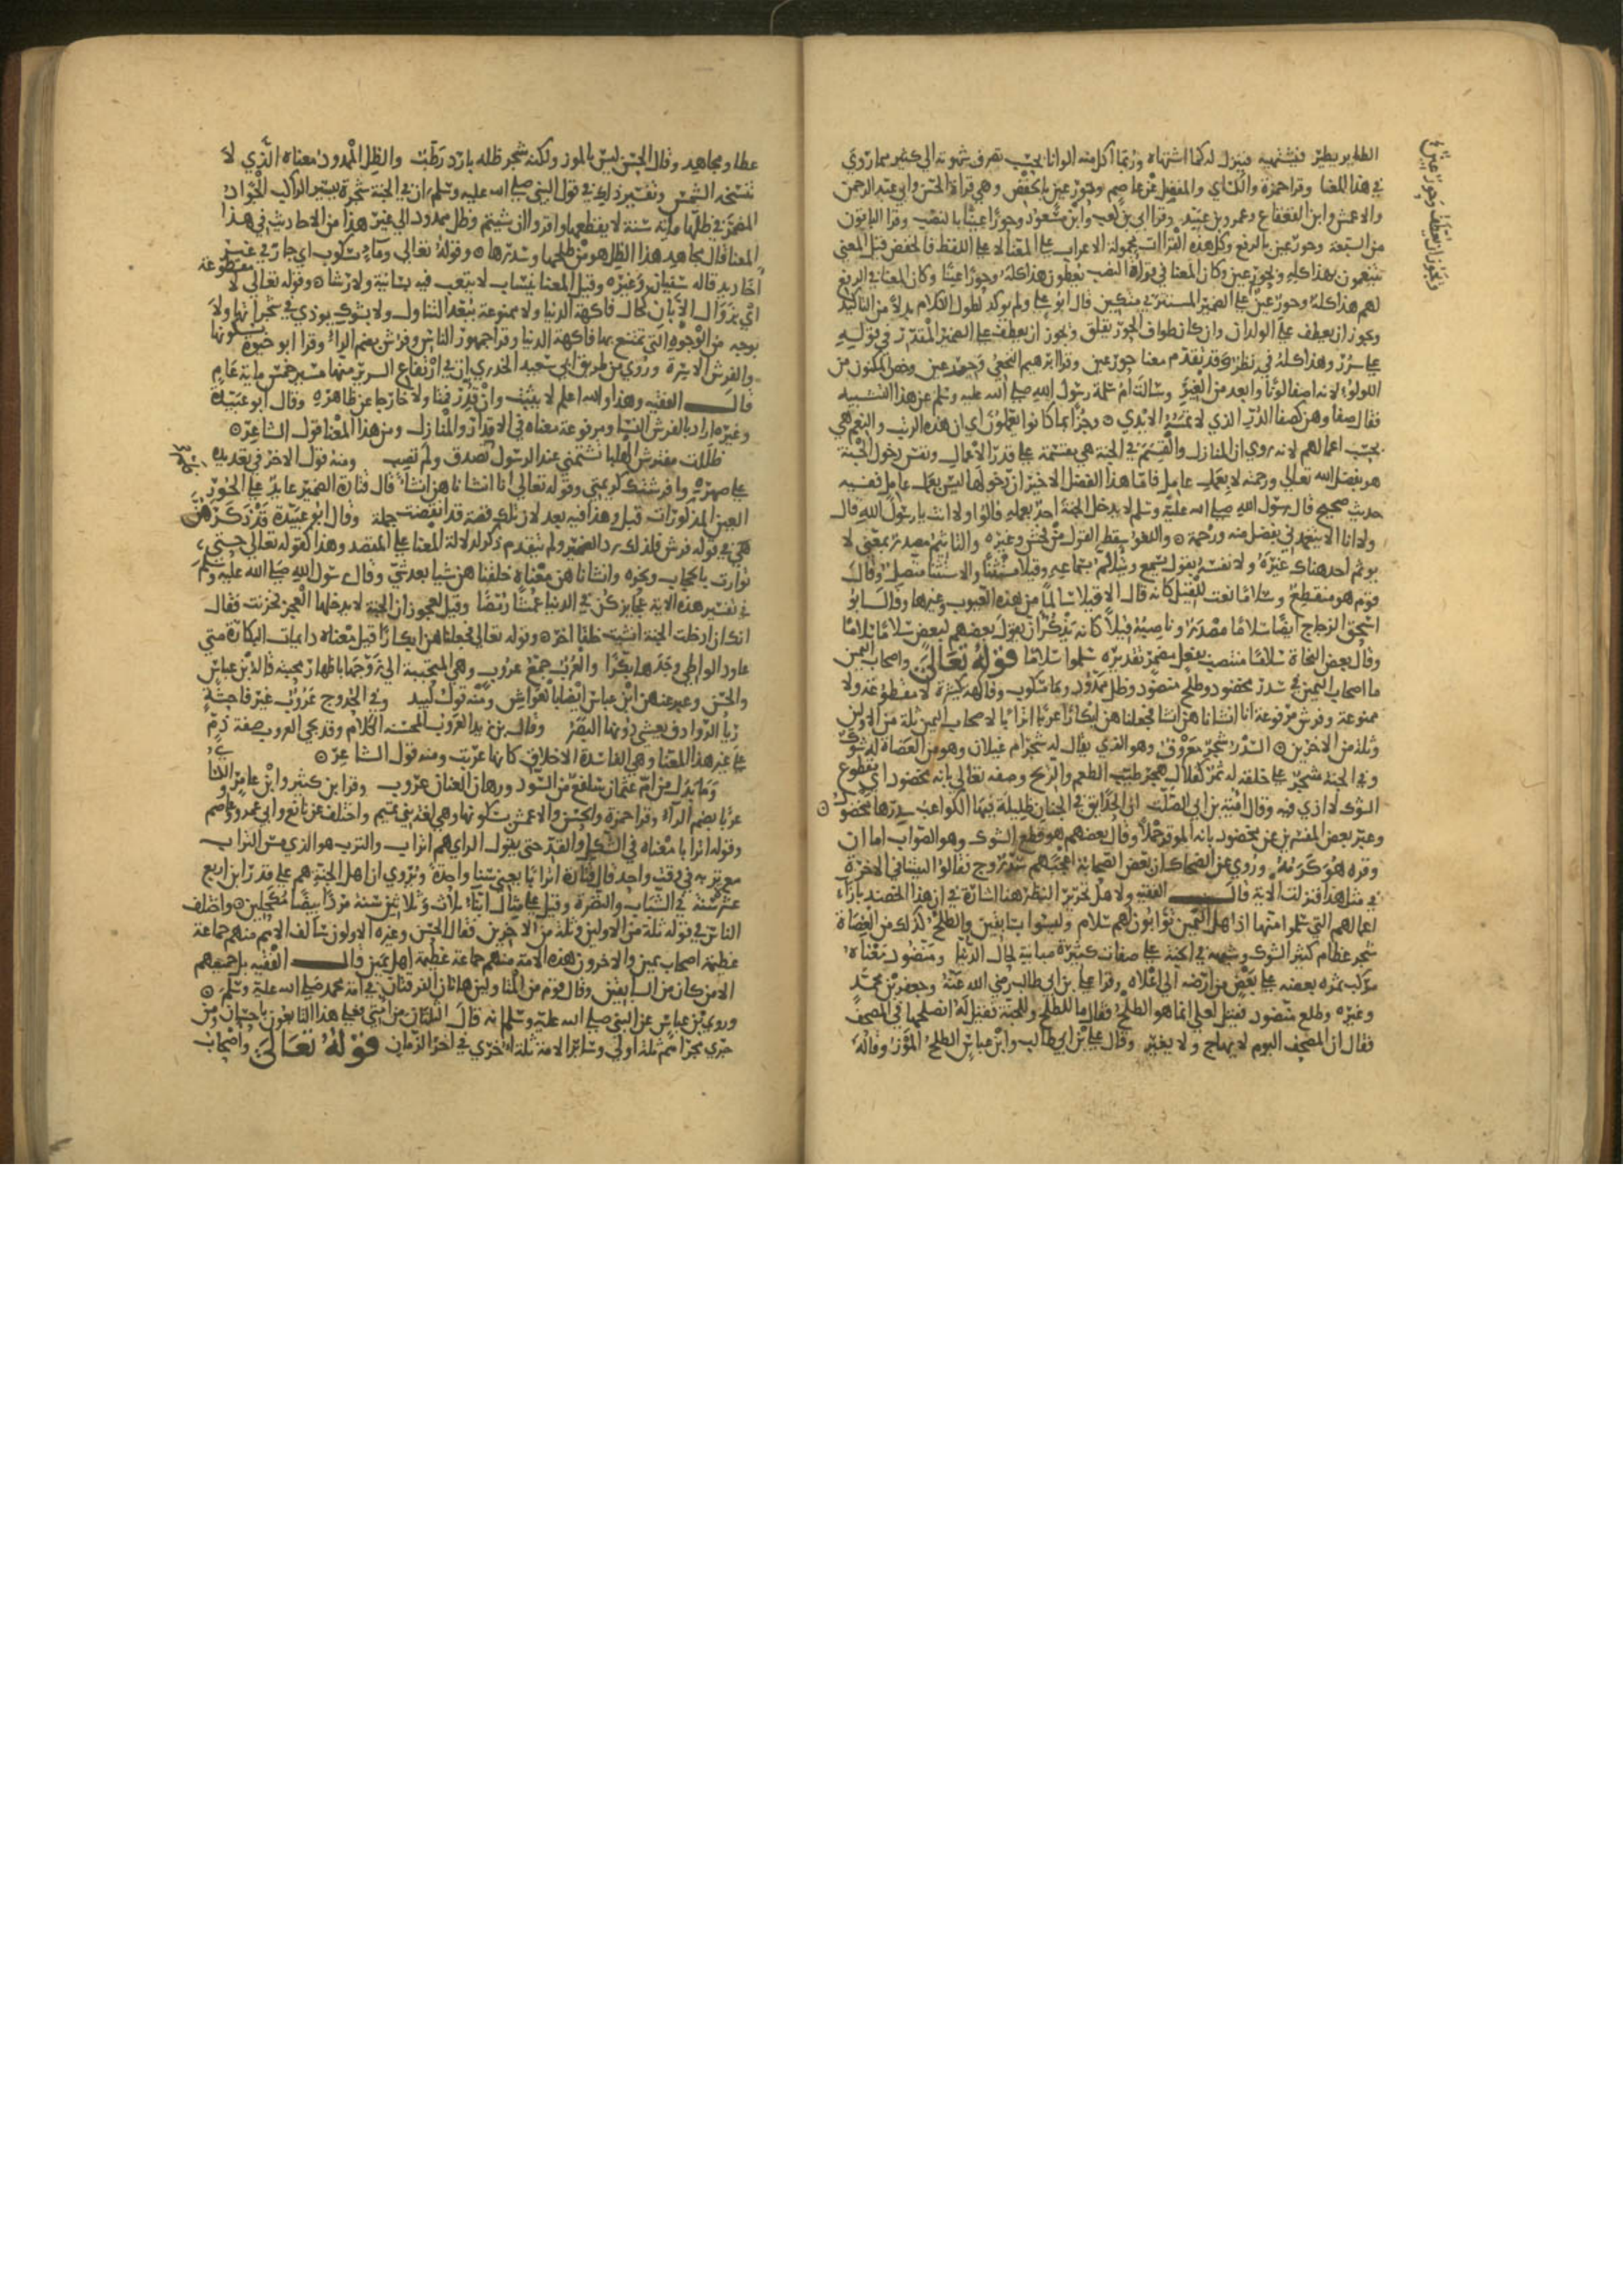 الطاير يطير فيشتهيه فينزل له كما اشتهاه وربما اكل منه الوانا بحسب تصرف شهوته الى كثير مما روي
في هذا المعنا وقرا حمزة والكساي والمفضل عن عاصم وحور عين بالخفض وهي قراة الحسن وابي عبد الرحمن
والاعمش وابن القعقاع وعمرو بن عبيد وقرا ابي بن كعب وابن مسعود وحورا عينا بالنصب وقرا الباقون
من السبعة وحور عين بالرفع وكل هذه القراات محمولة الاعراب على المعنا لا على اللفظ فالخفض قبل المعنى
ينعمون بهذا كله وبحور عين وكان المعنا في قراة النصب يعطون هذا كله وحورا عينا وكان المعنا في الرفع
لهم هذا كله وحور عين على الضمير المستتر في متكين قال ابو علي ولم يوكد لطول الكلام بدلا من التاكيد
ويجوز ان يعطف على الولدان وان كان طواف الحور يقلق ويجوز ان يعطف على الضمير المقدر في قوله
على سرر وهذا كله في نظر وقد تقدم معنا حور عين وقرا ابرهيم النخعي وحير عين وخص المكنون من
اللولو لانه اصفا لونا وابعد من الغير وسالت ام سلمة رسول الله صلى الله عليه وسلم عن هذا التشبيه
فقال صفاوهن كصفا الدر الذي لا تمسه الايدي وجزا بما كانوا يعملون اي ان هذه الرتب والنعم هي
بحسب اعمالهم لانه روي ان المنازل والقسم في الجنة هي مقتسمة على قدر الاعمال ونفس دخول الجنة
هو بفضل الله تعالى ورحمته لا بعمل عامل فاما هذا الفضل الاخير ان دخولها ليس بعمل عامل ففيه
حديث صحيح قال رسول الله صلى الله عليه وسلم لا يدخل الجنة احد بعمله قالوا ولا انت يا رسول الله قال
ولا انا الا يتغمدني بفضل منه ورحمة واللغو سقط القول من فحش وغيره والتاثيم مصدر بمعنى لا
يوثم احد هناك غيره ولا نفسه بقول يسمع ويتالم بسماعه وقيلا مستثنا والاستثنا متصل وقال
قوم هو منقطع وسلاما نعت للقيل كانه قال الا قيلا سالما من هذه العيوب وغيرها وقال ابو
اسحق الزجاج ايضا سلاما مصدر وناصبه قيلا كانه يذكر ان يقول بعضهم لبعض سلاما سلاما
وقال بعض النحاة سلاما منتصب بفعل مضمر تقديره سلموا سلاما قوله تعالى واصحاب اليمين
ما اصحاب اليمين في سدر مخضود وطلح منضود وظل ممدود وما مسكوب وفاكهة كثيرة لا مقطوعة ولا
ممنوعة وفرش مرفوعة انا انشاناهن انشا فجعلناهن ابكارا عربا اترابا لاصحاب اليمين ثلة من الاولين
وثلة من الاخرين السدر شجر معروف وهو الذي يقال له شجر ام غيلان وهو من العضاة له شوك
وفي الجنة شجر على خلقته له ثمر كقلال هجر طيب الطعم والريح وصفه تعالى بانه مخضود اي مقطوع
الشوك لا اذى فيه وقال امية بن ابي الصلت ان الحدايق في الجنان ظليلة فيها الكواعب سدرها مخضود
وعبر بعض المفسرين عن مخضود بانه الموقر حملا وقال بعضهم هو قطع الشوك وهو الصواب اما ان
وقره هو كرمه وروي عن الضحاك ان بعض الصحابة اعجبهم سدر وج فقالوا ليتنا في الاخرة
في مثل هذا فنزلت الاية قال الفقيه ولاهل تحرير النظر هنا اشارة في ان هذا الخضد بازاء
اعمالهم التي سلموا منها اذ اهل اليمين توابون لهم سلام وليسوا بسابقين والطلح كذلك من العضاة
شجر عظام كثير الشوك وشبهه في الجنة على صفات كثيرة مباينة لحال الدنيا ومنضود معناه
مركب ثمره بعضه على بعض من ارضه الى اعلاه وقرا علي بن ابي طالب رضي الله عنه وجعفر بن محمد
وغيره وطلع منضود فقيل لعلي انما هو الطلح فقال ما للطلح وللجنة فقيل له انصلحها في المصحف
فقال ان المصحف اليوم لا يهاج ولا يغير وقال علي بن ابي طالب وابن عباس الطلح الموز وقاله
ويجوز ان يعطف وحور عين
عطا ومجاهد وقال الحسن ليس بالموز ولكنه شجر ظله بارد رطب والظل الممدود معناه الذي لا
تنسخه الشمس وتفسير ذلك في قول النبي صلى الله عليه وسلم ان في الجنة شجرة يسير الراكب الجواد
المضمر في ظلها ماية سنة لا يقطعها واقروا ان شيتم وظل ممدود الى غير هذا من الاحاديث في هذا
المعنا قال مجاهد هذا الظل هو من طلحها وسدرها وقوله تعالى وماء مسكوب اي جار في غير
اخاديد قاله سفيان وغيره وقيل المعنا يساب لا يتعب فيه بسانية ولا رشا وقوله تعالى لا مقطوعة
اي بزوال الابان كحال فاكهة الدنيا ولا ممنوعة ببعد التناول ولا بشوك يوذي في شجراتها ولا
بوجه من الوجوه التي تمتنع بها فاكهة الدنيا وقرا جمهور الناس وفرش بضم الراء وقرا ابو حيوة بسكونها
والفرش الاسرة وروي من طريق ابي سعيد الخدري ان في ارتفاع السرير منها مسير خمس ماية عام
قال الفقيه وهذا والله اعلم لا يثبت وان قدر فتاولا خارجا عن ظاهره وقال ابو عبيدة
وغيره اراد بالفرش النسا ومرفوعة معناه في الاقدار والمنازل ومن هذا المعنا قول الشاعر
ظللت مفترش الهلبا تشتمني عند الرسول فلم تصدق ولم تصب ومنه قول الاخر في تعديه
على صهره وافرشتك كريمتي وقوله تعالى انا انشاناهن انشا قال قتادة الضمير عايد على الحور
العين المذكورات قبل وهذا فيه بعد لان تلك قصة قد انقضت جملة وقال ابو عبيدة قد ذكرهن
في قوله فرش فلذلك رد الضمير وان لم يتقدم ذكر لدلالة المعنا على المقصد وهذا كقوله تعالى حتى
توارت بالحجاب ونحوه وانشاناهن معناه خلقناهن شيا بعد شي وقال رسول الله صلى الله عليه وسلم
في تفسير هذه الاية عجايزكن في الدنيا عمشا رمصا وقيل لعجوز ان الجنة لا يدخلها العجز فحزنت فقال
انك اذا دخلت الجنة انشيت خلقا اخر وقوله تعالى فجعلناهن ابكارا قيل معناه دايمات البكارة متى
عاود الواطي وجدها بكرا والعرب جمع عروب وهي المتحببة الى زوجها باظهار محبته قاله ابن عباس
والحسن وعبر عنهن ابن عباس ايضا بالعواشق ومنه قول لبيد وفي الحدوج عروب غير فاحشة
ريا الروادف يعشي دونها البصر وقال بن زيد العروب الحسنة الكلام وقد تجي العروب صفة ذم
على غير هذا المعنا وهي الفاسدة الاخلاق كانها عربت ومنه قول الشاعر
وما بدل من ام عثمان سلفع من السود ورهاء العنان عروب وقرا ابن كثير وابن عامر والكسائي
عربا بضم الراء وقرا حمزة والحسن والاعمش بسكونها وهي لغة بني تميم واختلف عن نافع وابي عمرو وعاصم
وقوله اترابا معناه في الشكل والقد حتى يقول الراي هم اتراب والترب هو الذي مس التراب
مع تربه في وقت واحد قال قتادة اترابا يعني سنا واحدة ويروى ان اهل الجنة هم على قدر ابن اربع
عشر سنة في الشباب والنضرة وقيل على مثال ابناء ثلاث وثلاثين سنة مردا بيضا مكحلين واختلف
الناس في قوله ثلة من الاولين وثلة من الاخرين فقال الحسن وغيره الاولون سالف الامم منهم جماعة
عظيمة اصحاب يمين والاخرون هذه الامة منهم جماعة عظيمة اهل يمين قال الفقيه بل جميعهم
الا من كان من السابقين وقال قوم من المتاولين هاتان الفرقتان في امة محمد صلى الله عليه وسلم
وروى بن عباس عن النبي صلى الله عليه وسلم انه قال الثلتان من امتي فعلى هذا التابعون باحسان ومن
جرى مجراهم ثلة اولى وساير الامة ثلة اخرى في اخر الزمان قوله تعالى واصحاب